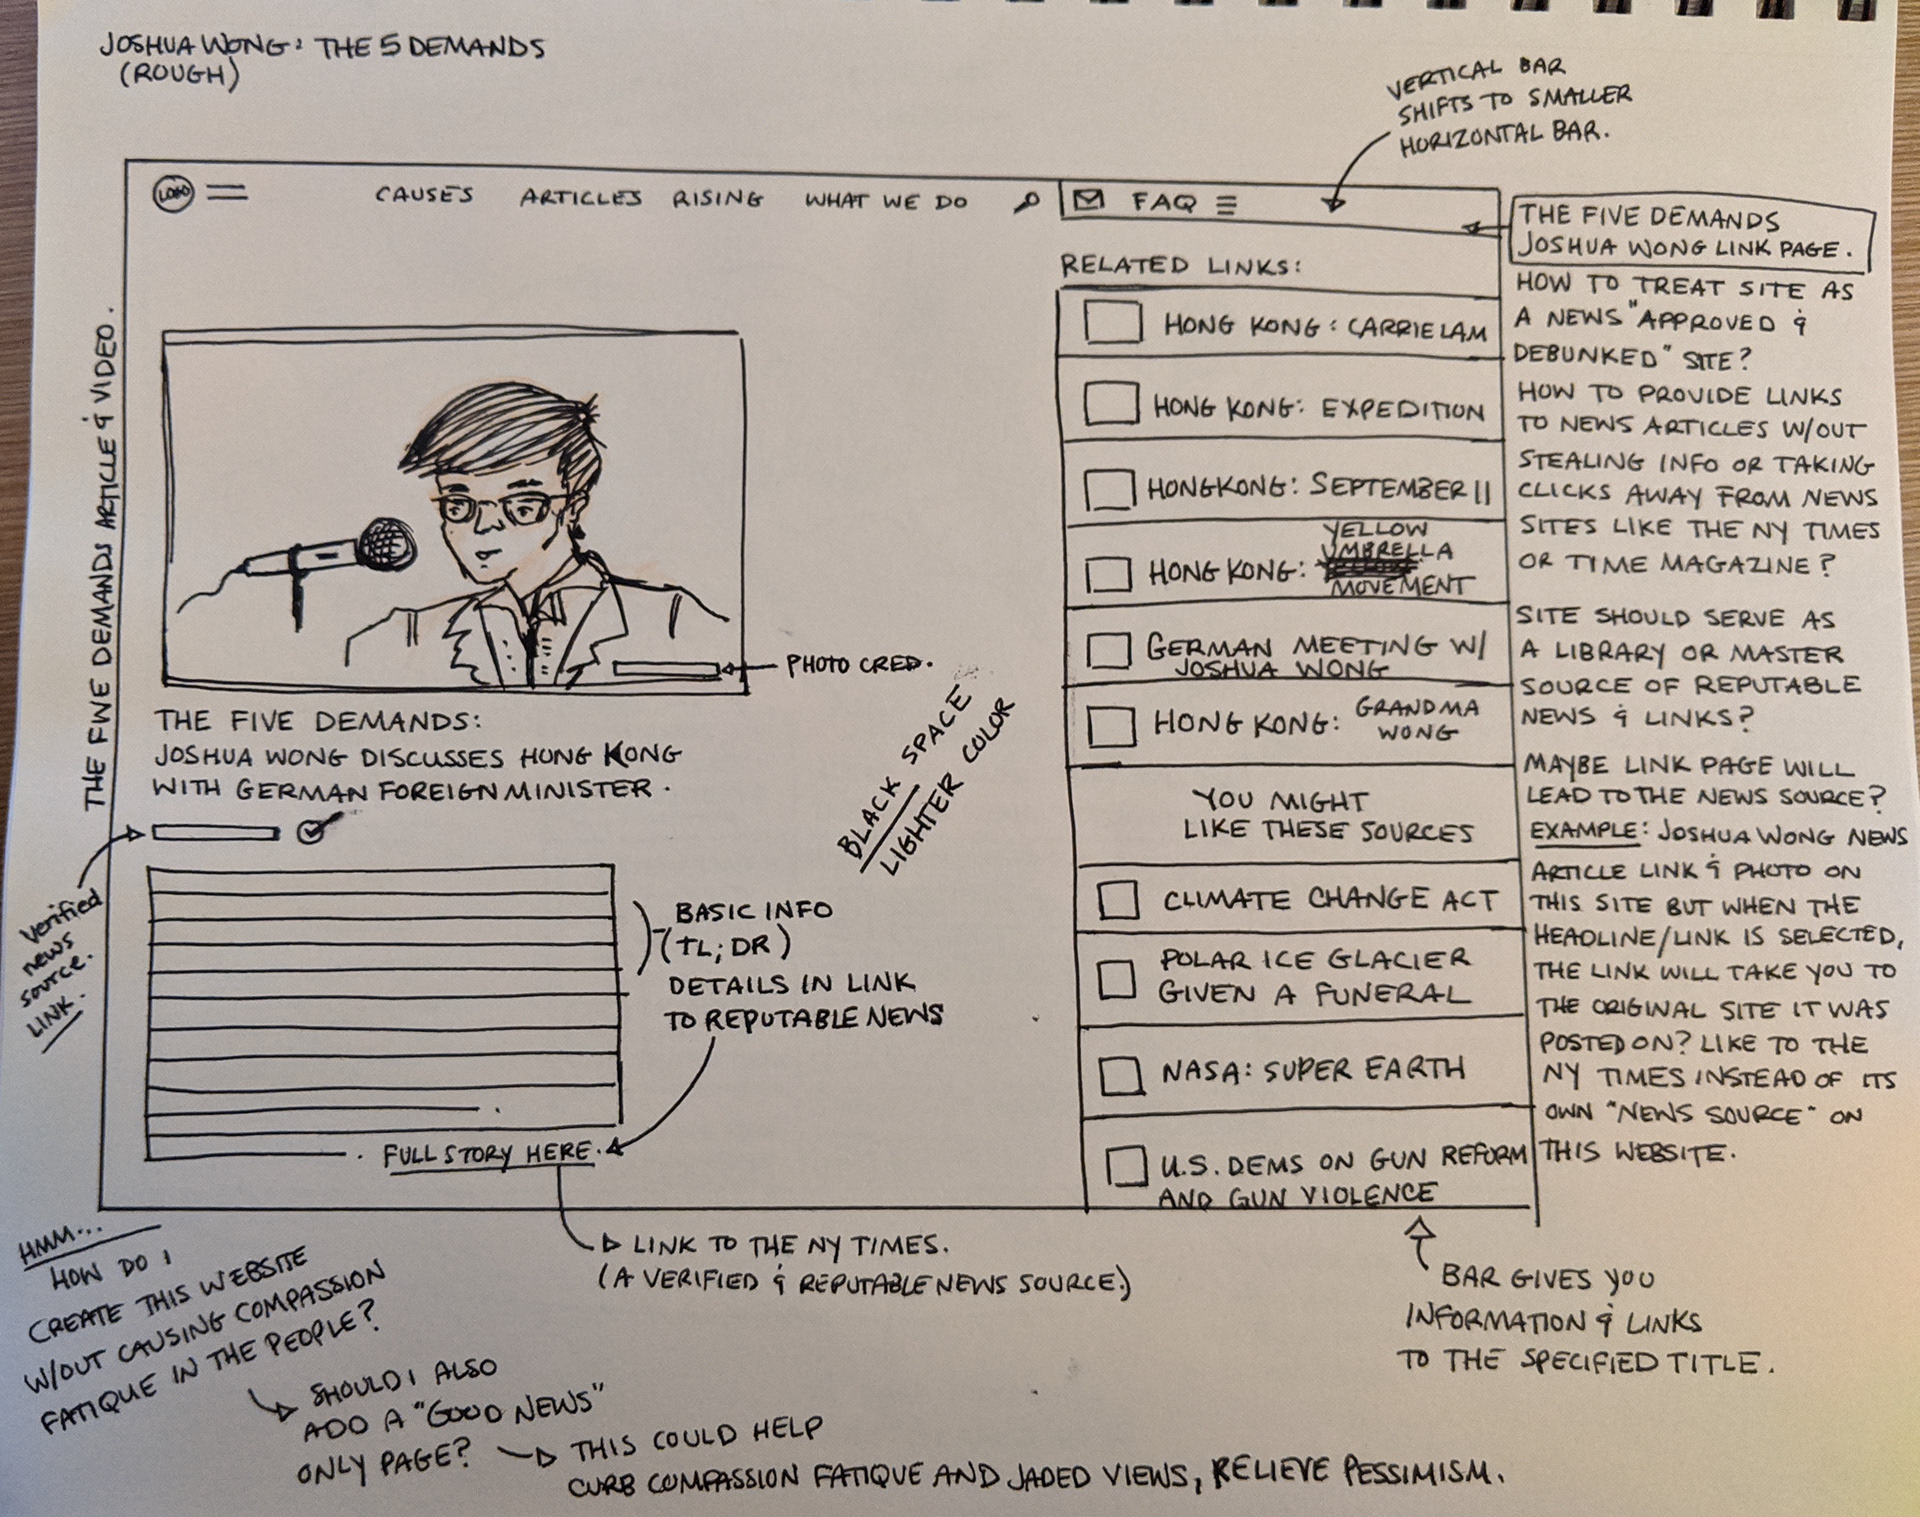 JOSHUA WONG: THE 5 DEMANDS
(ROUGH)
VERTICAL BAR
SHIFTS TO SMALLER
HORIZONTAL BAR.
LOGO
CAUSES ARTICLES RISING WHAT WE DO
FAQ
RELATED LINKS:
HONG KONG: CARRIE LAM
HONG KONG: EXPEDITION
HONG KONG: SEPTEMBER 11
HONG KONG: YELLOW
UMBRELLA
MOVEMENT
GERMAN MEETING W/
JOSHUA WONG
HONG KONG: GRANDMA
WONG
YOU MIGHT
LIKE THESE SOURCES
CLIMATE CHANGE ACT
POLAR ICE GLACIER
GIVEN A FUNERAL
NASA: SUPER EARTH
U.S. DEMS ON GUN REFORM
AND GUN VIOLENCE
THE FIVE DEMANDS
JOSHUA WONG LINK PAGE.
HOW TO TREAT SITE AS
A NEWS "APPROVED &
DEBUNKED" SITE?
HOW TO PROVIDE LINKS
TO NEWS ARTICLES W/OUT
STEALING INFO OR TAKING
CLICKS AWAY FROM NEWS
SITES LIKE THE NY TIMES
OR TIME MAGAZINE?
SITE SHOULD SERVE AS
A LIBRARY OR MASTER
SOURCE OF REPUTABLE
NEWS & LINKS?
MAYBE LINK PAGE WILL
LEAD TO THE NEWS SOURCE?
EXAMPLE: JOSHUA WONG NEWS
ARTICLE LINK & PHOTO ON
THIS SITE BUT WHEN THE
HEADLINE/LINK IS SELECTED,
THE LINK WILL TAKE YOU TO
THE ORIGINAL SITE IT WAS
POSTED ON? LIKE TO THE
NY TIMES INSTEAD OF ITS
OWN "NEWS SOURCE" ON
THIS WEBSITE.
THE FIVE DEMANDS ARTICLE & VIDEO.
PHOTO CRED.
THE FIVE DEMANDS:
JOSHUA WONG DISCUSSES HONG KONG
WITH GERMAN FOREIGN MINISTER.
BLACK SPACE
LIGHTER COLOR
Verified
news
source.
LINK.
BASIC INFO
(TL;DR)
DETAILS IN LINK
TO REPUTABLE NEWS
FULL STORY HERE.
LINK TO THE NY TIMES.
(A VERIFIED & REPUTABLE NEWS SOURCE.)
BAR GIVES YOU
INFORMATION & LINKS
TO THE SPECIFIED TITLE.
HMM...
HOW DO I
CREATE THIS WEBSITE
W/OUT CAUSING COMPASSION
FATIQUE IN THE PEOPLE?
SHOULD I ALSO
ADD A "GOOD NEWS"
ONLY PAGE?
THIS COULD HELP
CURB COMPASSION FATIQUE AND JADED VIEWS, RELIEVE PESSIMISM.